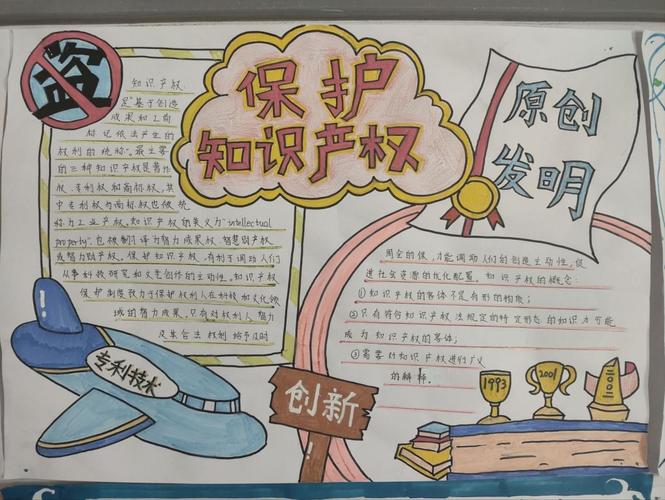 盗
保护
知识产权
原创
发明
知识产权,
是"基于创造
成果和工商
标记依法产生的
权利的统称"。最主要
的三种知识产权是著作
权、专利权和商标权,其
中专利权与商标权也被统
称为工业产权。知识产权的英文为"intellectual
property",也被翻译为智力成果权、智慧财产权
或智力财产权。保护知识产权,有利于调动人们
从事科技研究和文艺创作的主动性。知识产权
保护制度致力于保护权利人在科技和文化领
域的智力成果。只有对权利人智力
及其合法权利给予及时
周全的保,才能调动人们的创造主动性,促
进社会资源的优化配置。知识产权的概念:
①知识产权的客体不是有形的物质;
②只有符合知识产权法规定的特定形态的知识才可能
成为知识产权的客体;
③需要对知识产权进行广义
的解释。
专利技术
创新
1993
2001